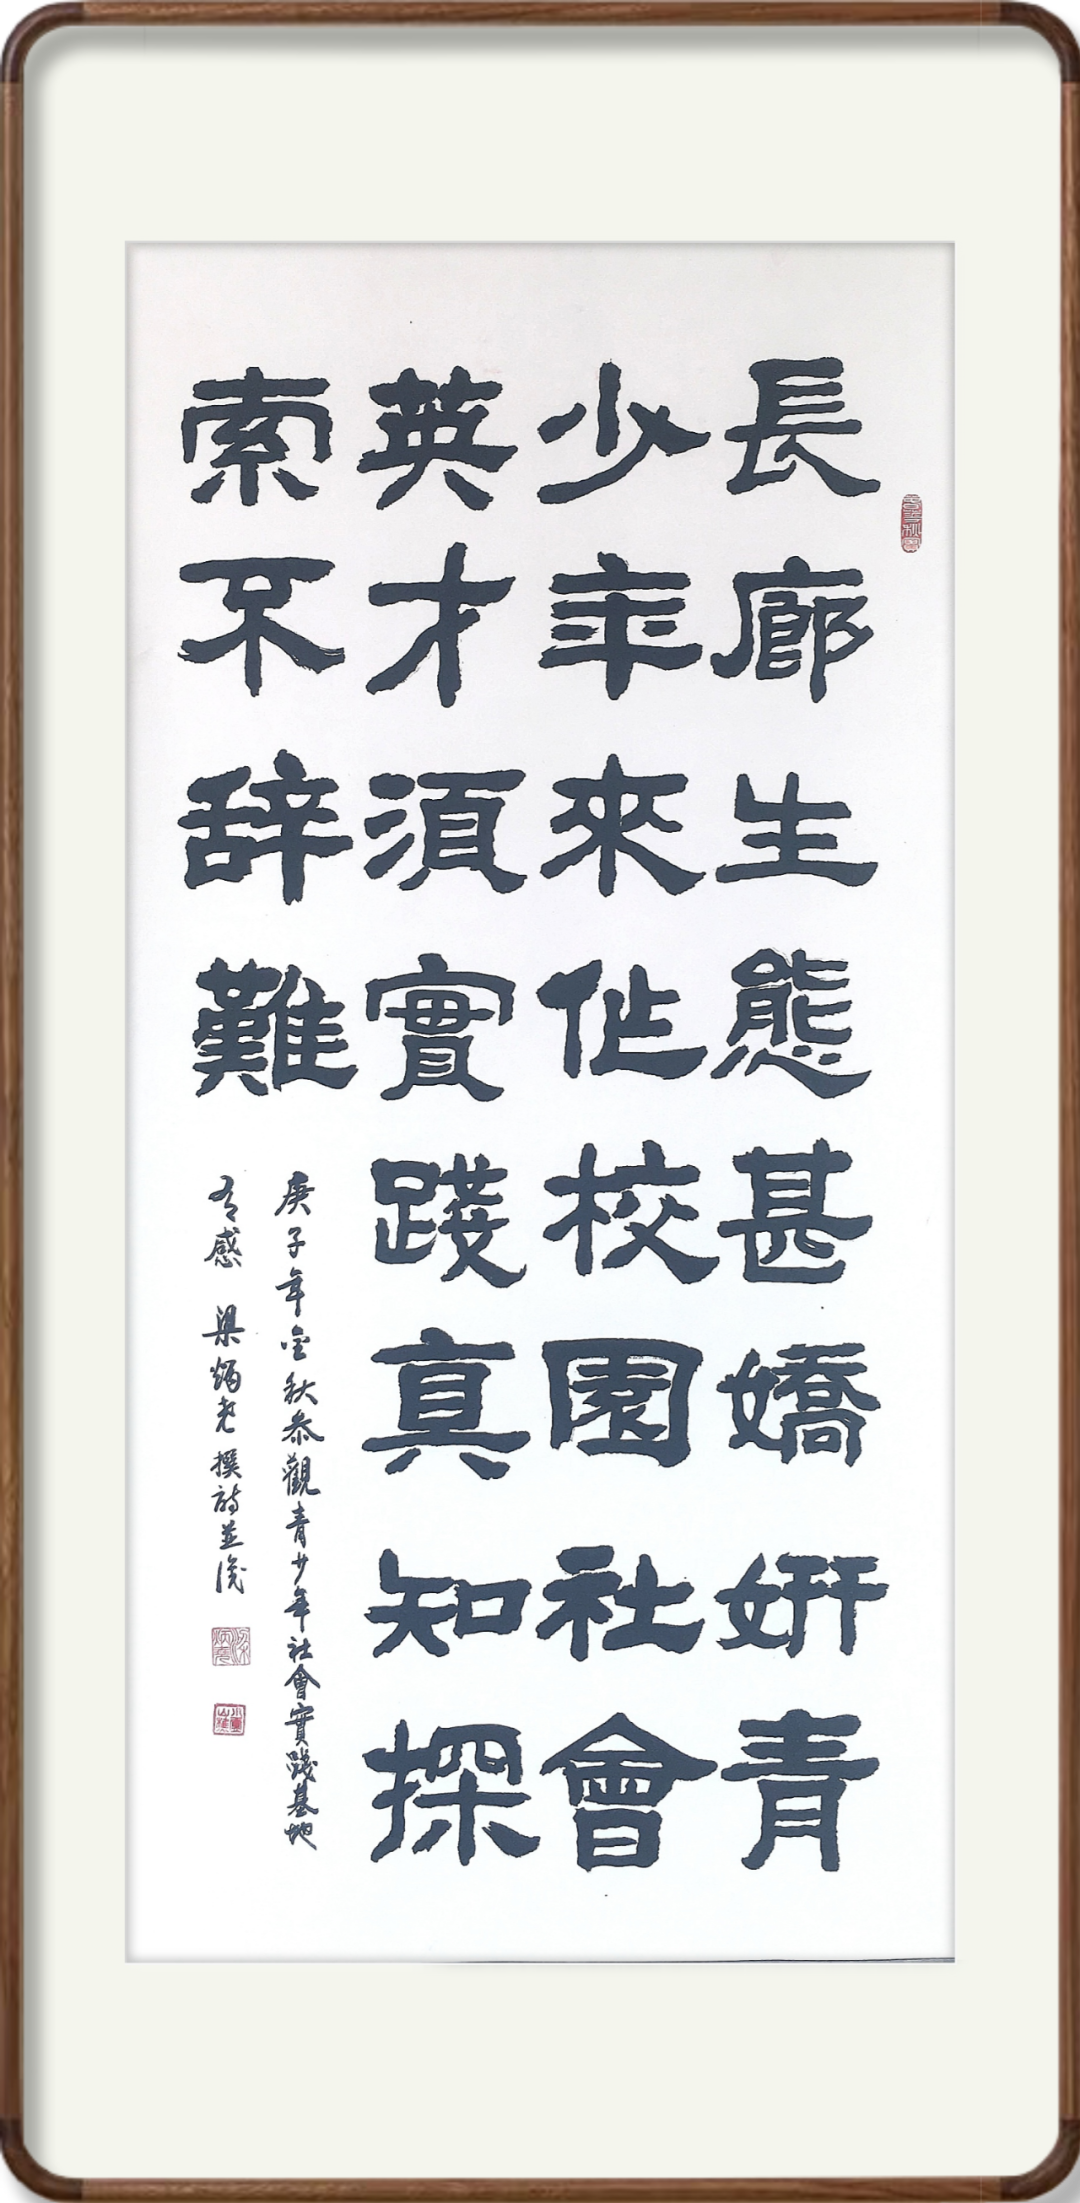 長廊生態甚嬌妍青
少年來作校園社會
英才須實踐真知探
索不辞難
庚子年金秋叅觀青少年社會實踐基地
有感 梁炳尧撰詩並識